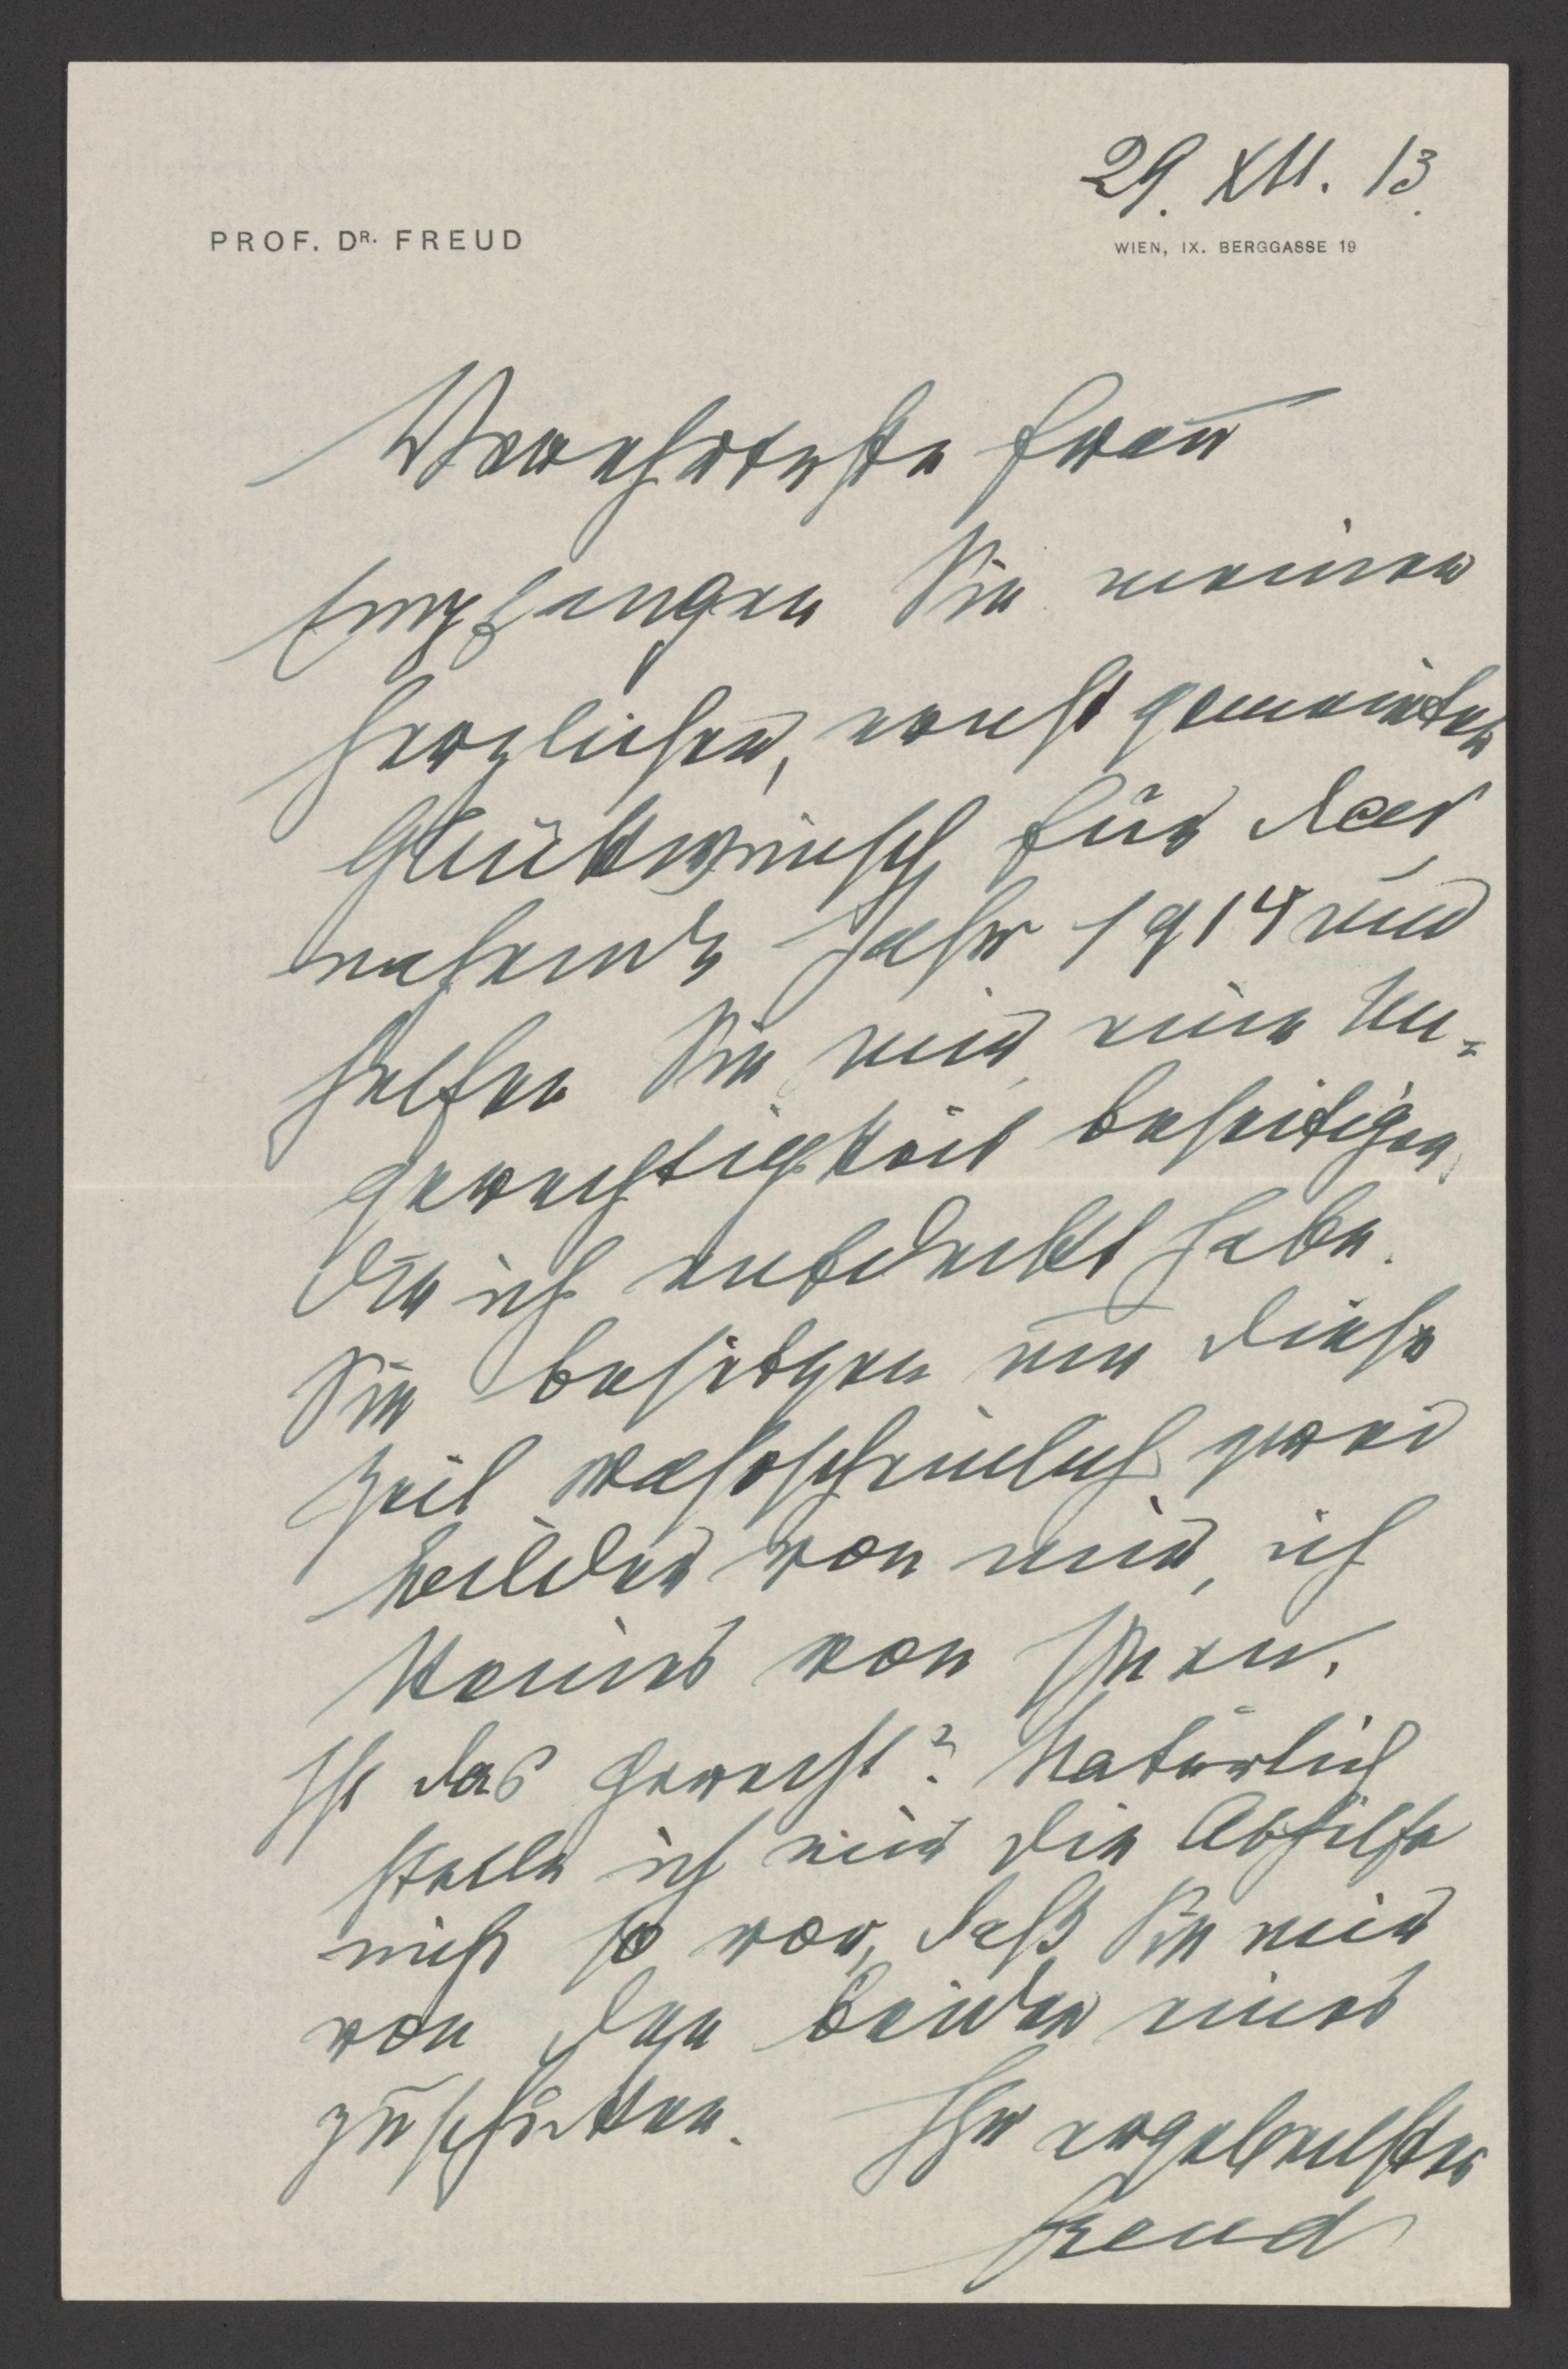 29. XII. 13.
PROF. DR. FREUD
WIEN, IX. BERGGASSE 19
Verehrteste Frau
Empfangen Sie meinen
herzlichen, ernst gemeinten
Glückwunsch für das
nahende Jahr 1914 und
helfen Sie mir eine Un=
gerechtigkeit beseitigen,
die ich entdeckt habe.
Sie besitzen um diese
Zeit wahrscheinlich zwei
Bilder von mir, ich
keines von Ihnen.
Ist das gerecht? Natürlich
stelle ich mir die Abhilfe
nicht so vor, daß Sie mir
von den beiden eines
zuschicken. Ihr ergebenster
Freud